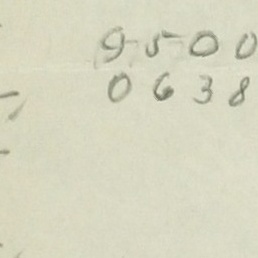 9500
0638